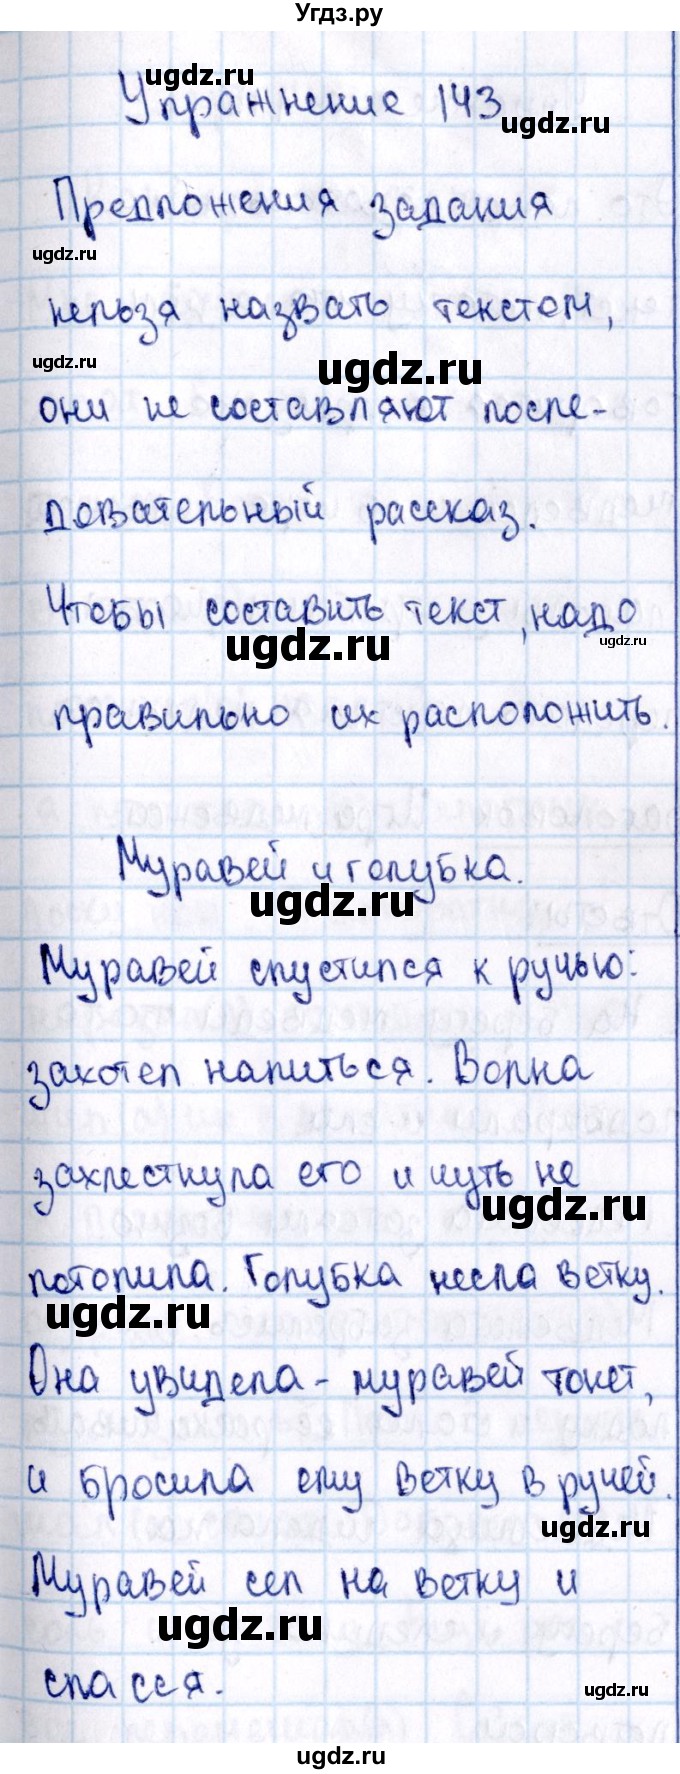 Угдз.ру
ugdz.ru
Упражнение 143
ugdz.ru
Предложения задания
ugdz.ru
нельзя назвать текстом,
ugdz.ru
ugdz.ru
они не составляют после-
довательный рассказ.
Чтобы составить текст, надо
ugdz.ru
ugdz.ru
правильно их расположить.
Муравей и голубка.
ugdz.ru
Муравей спустился к ручью:
захотел напиться. Волна
захлестнула его и чуть не
ugdz.ru
потопила. Голубка несла ветку.
ugdz.ru
Она увидела - муравей тонет,
и бросила ему ветку в ручей.
ugdz.ru
Муравей сел на ветку и
ugdz.ru
спасся.
ugdz.ru
ugdz.ru